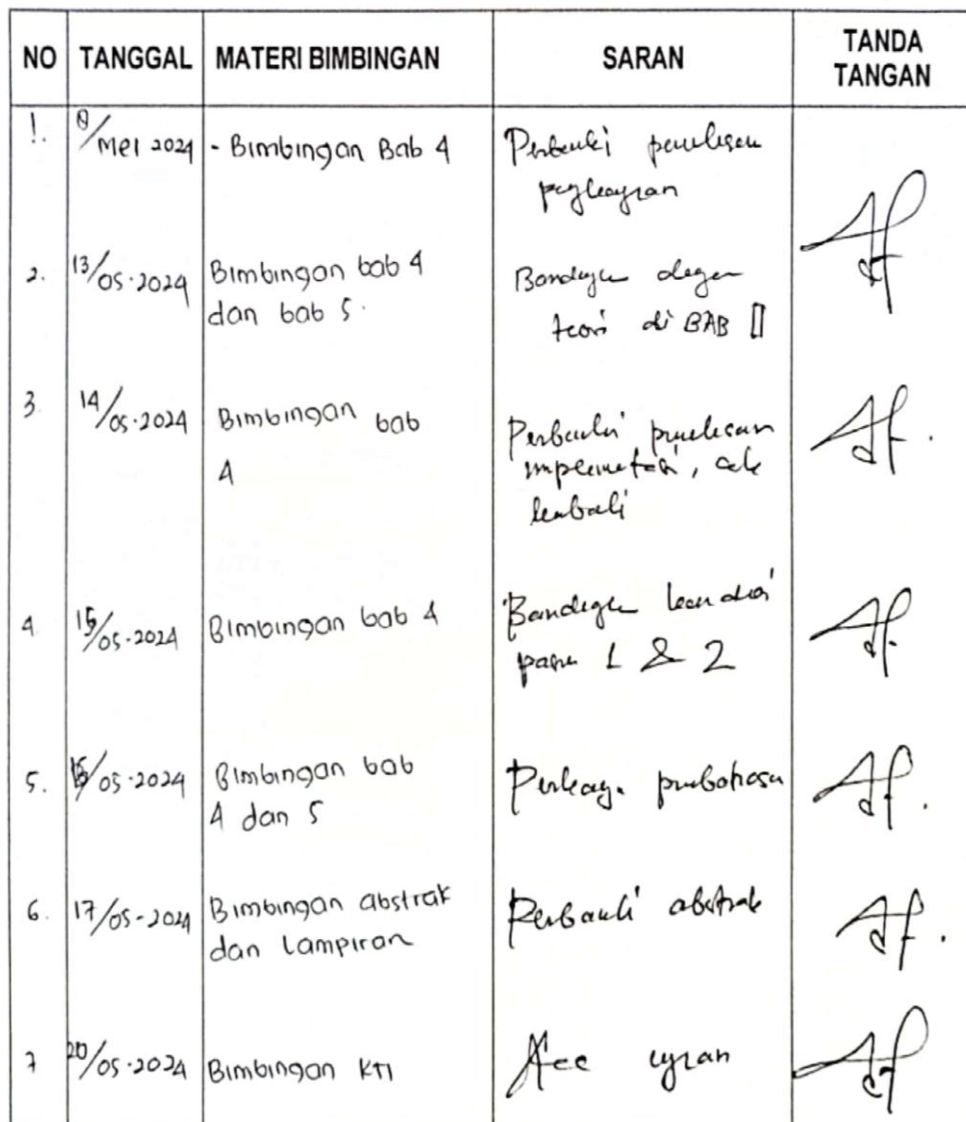 NO TANGGAL MATERI BIMBINGAN SARAN TANDA TANGAN
1. 8/Mei 2024 - Bimbingan Bab 4 Perbaiki penulisan
pengkajian
2. 13/05-2024 Bimbingan bab 4 Bandingkan dengan
dan bab 5. teori di BAB II
3. 14/05-2024 Bimbingan bab Perbaiki penulisan
4 implementasi, cek
kembali
4. 15/05-2024 Bimbingan bab 4 Bandingkan kondisi
pasien 1 & 2
5. 16/05-2024 Bimbingan bab Pembahasan
4 dan 5
6. 17/05-2024 Bimbingan abstrak Perbaiki abstrak
dan Lampiran
7 20/05-2024 Bimbingan KTI Acc ujian